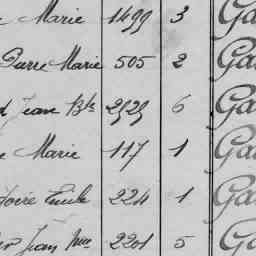 Marie 1499 3 Ga
Pierre Marie 505 2 Ga
Jean Bte 2529 6 Ga
Marie 117 1 Ga
Emile 224 1 Ga
Jean 2201 5 Ga